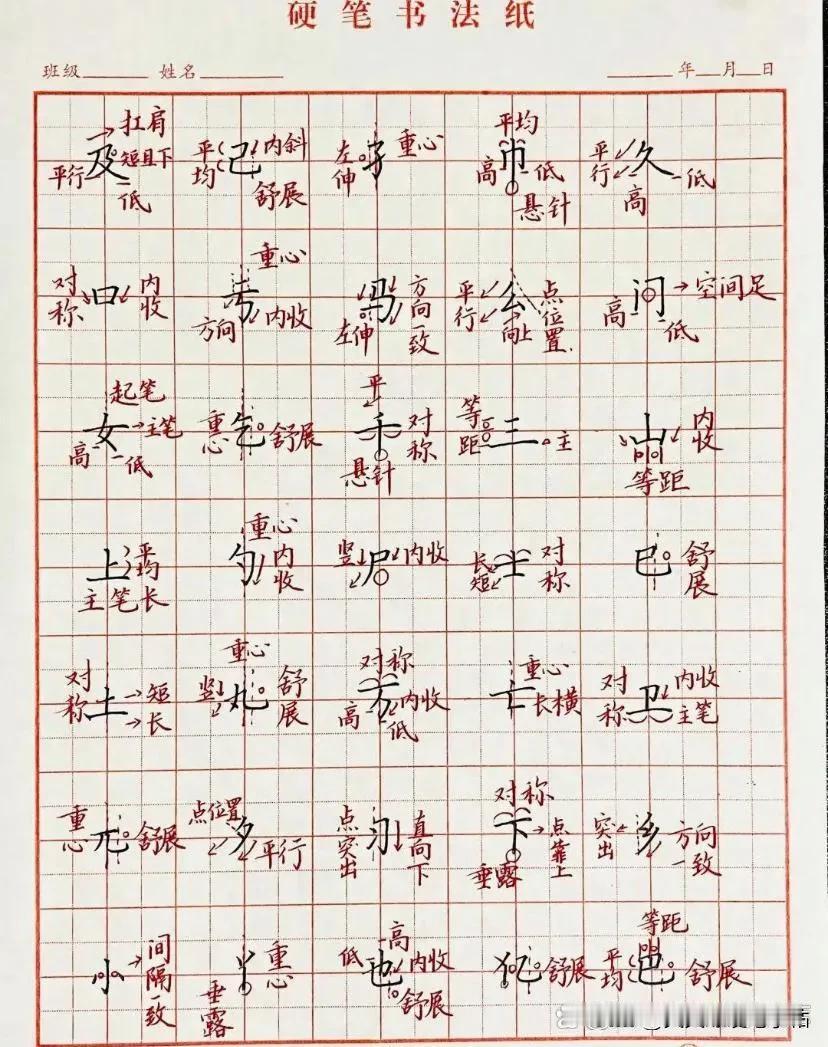 硬笔书法纸
班级 姓名 年 月 日
及 扛肩 短且下 平行 低
己 平均 内斜 舒展
子 左伸 重心
巾 平均 高 低 悬针
久 平行 高 低
口 对称 内收
重心 方向 内收
马 左伸 方向一致
公 平行 向上 点位置
问 高 低 空间足
女 起笔 主笔 高 低
乞 重心 舒展
千 平 对称 悬针
三 等距 主
山 内收 等距
上 平均 主笔长
勺 重心 内收
尸 竖 内收
士 长短 对称
巳 舒展
土 对称 短 长
丸 重心 竖 舒展
方 对称 高 内收 低
亡 重心 长横
卫 对称 内收 主笔
兀 重心 舒展
夕 点位置 平行
刃 点突出 直向下
下 对称 点靠上 垂露
乡 突出 方向一致
小 间隔一致
丫 重心 垂露
也 低 高 内收 舒展
犯 舒展
邑 等距 平均 舒展